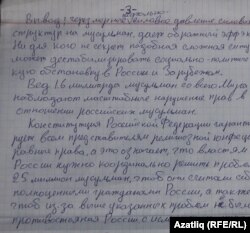 -3-
Вывод: чрезмерное силовое давление силовых
структур на мусульман, даст обратный эффект
Ни для кого не секрет подобная сложная ситу
может дестабилизировать социально-политиче
кую обстановку в России и Зарубежом.
Вед. 1.6 миллиарда мусульман со всего Мира
наблюдают масштабные нарушения прав в
отношении российских мусульман.
Конституция Российской Федерации гарантир
рует всем представителям религиозной конфесси
равные права, а это означает, что властям
России нужно координально решить проблем
25 миллион мусульман, чтоб они считали себя
полноценными гражданами России, а так же
чтоб из за выше указанных проблем не был
противостояния России с ислам
Azatliq (RFE/RL)